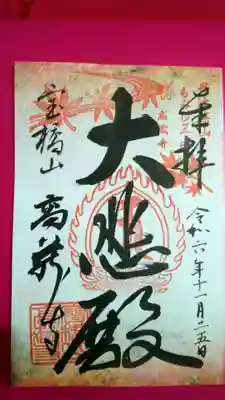 奉拝
令和六年十一月二五日
大悲殿
宝橋山
高蔵寺